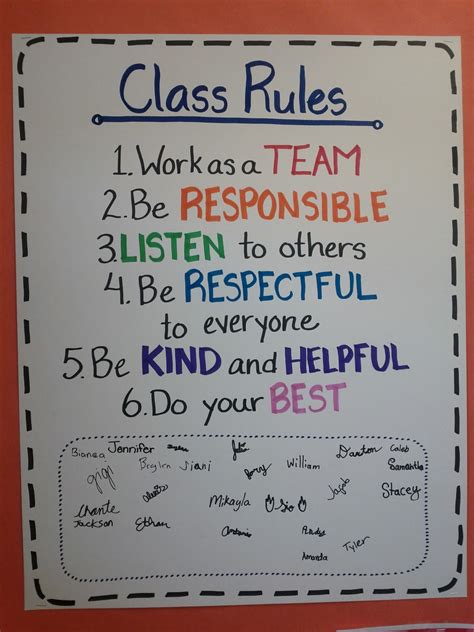 Class Rules
1. Work as a TEAM
2. Be RESPONSIBLE
3. LISTEN to others
4. Be RESPECTFUL
to everyone
5. Be KIND and HELPFUL
6. Do your BEST
Bianca Jennifer Daxton Caleb
gigi Braylen Jiani William Samantha
Mikayla Jacob Stacey
Chante
Jackson Ethan Antonio
Tyler
Amanda